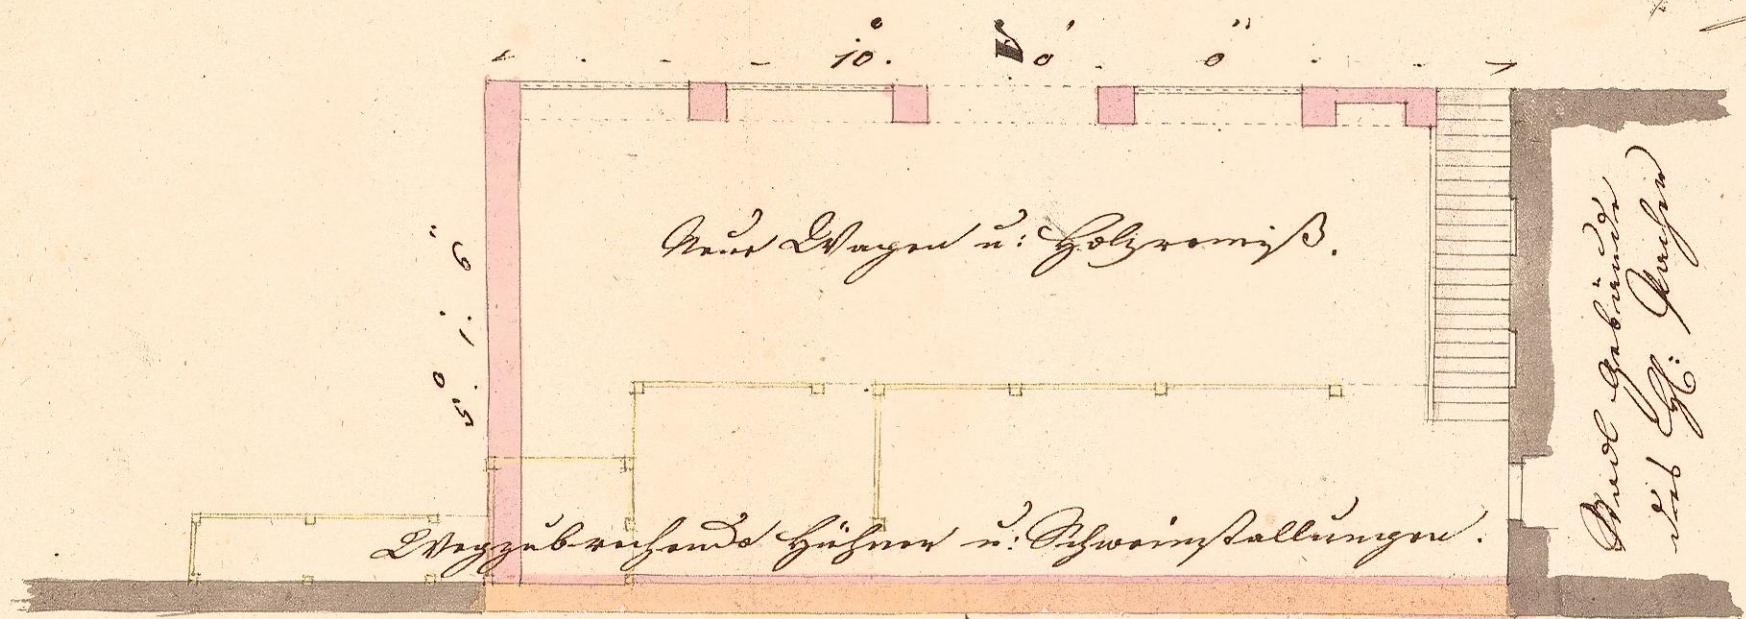 10.° 0' 0"
5.° 1.' 6"
Neue Wagen u: Holzremiß.
Wegzubrechende Hühner u: Schweinstallungen.
Gebäude
des H: